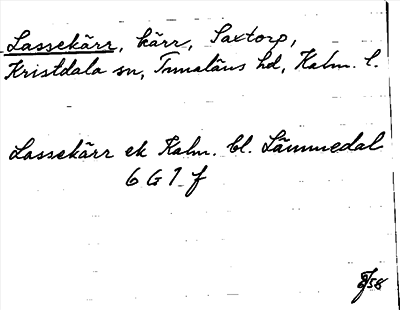 Lassekärr, kärr, Saxtorp,
Kristdala sn, Tunaläns hd, Kalm. l.
Lassekärr ek Kalm. bl. Lämmedal
6 G 7 f
/58